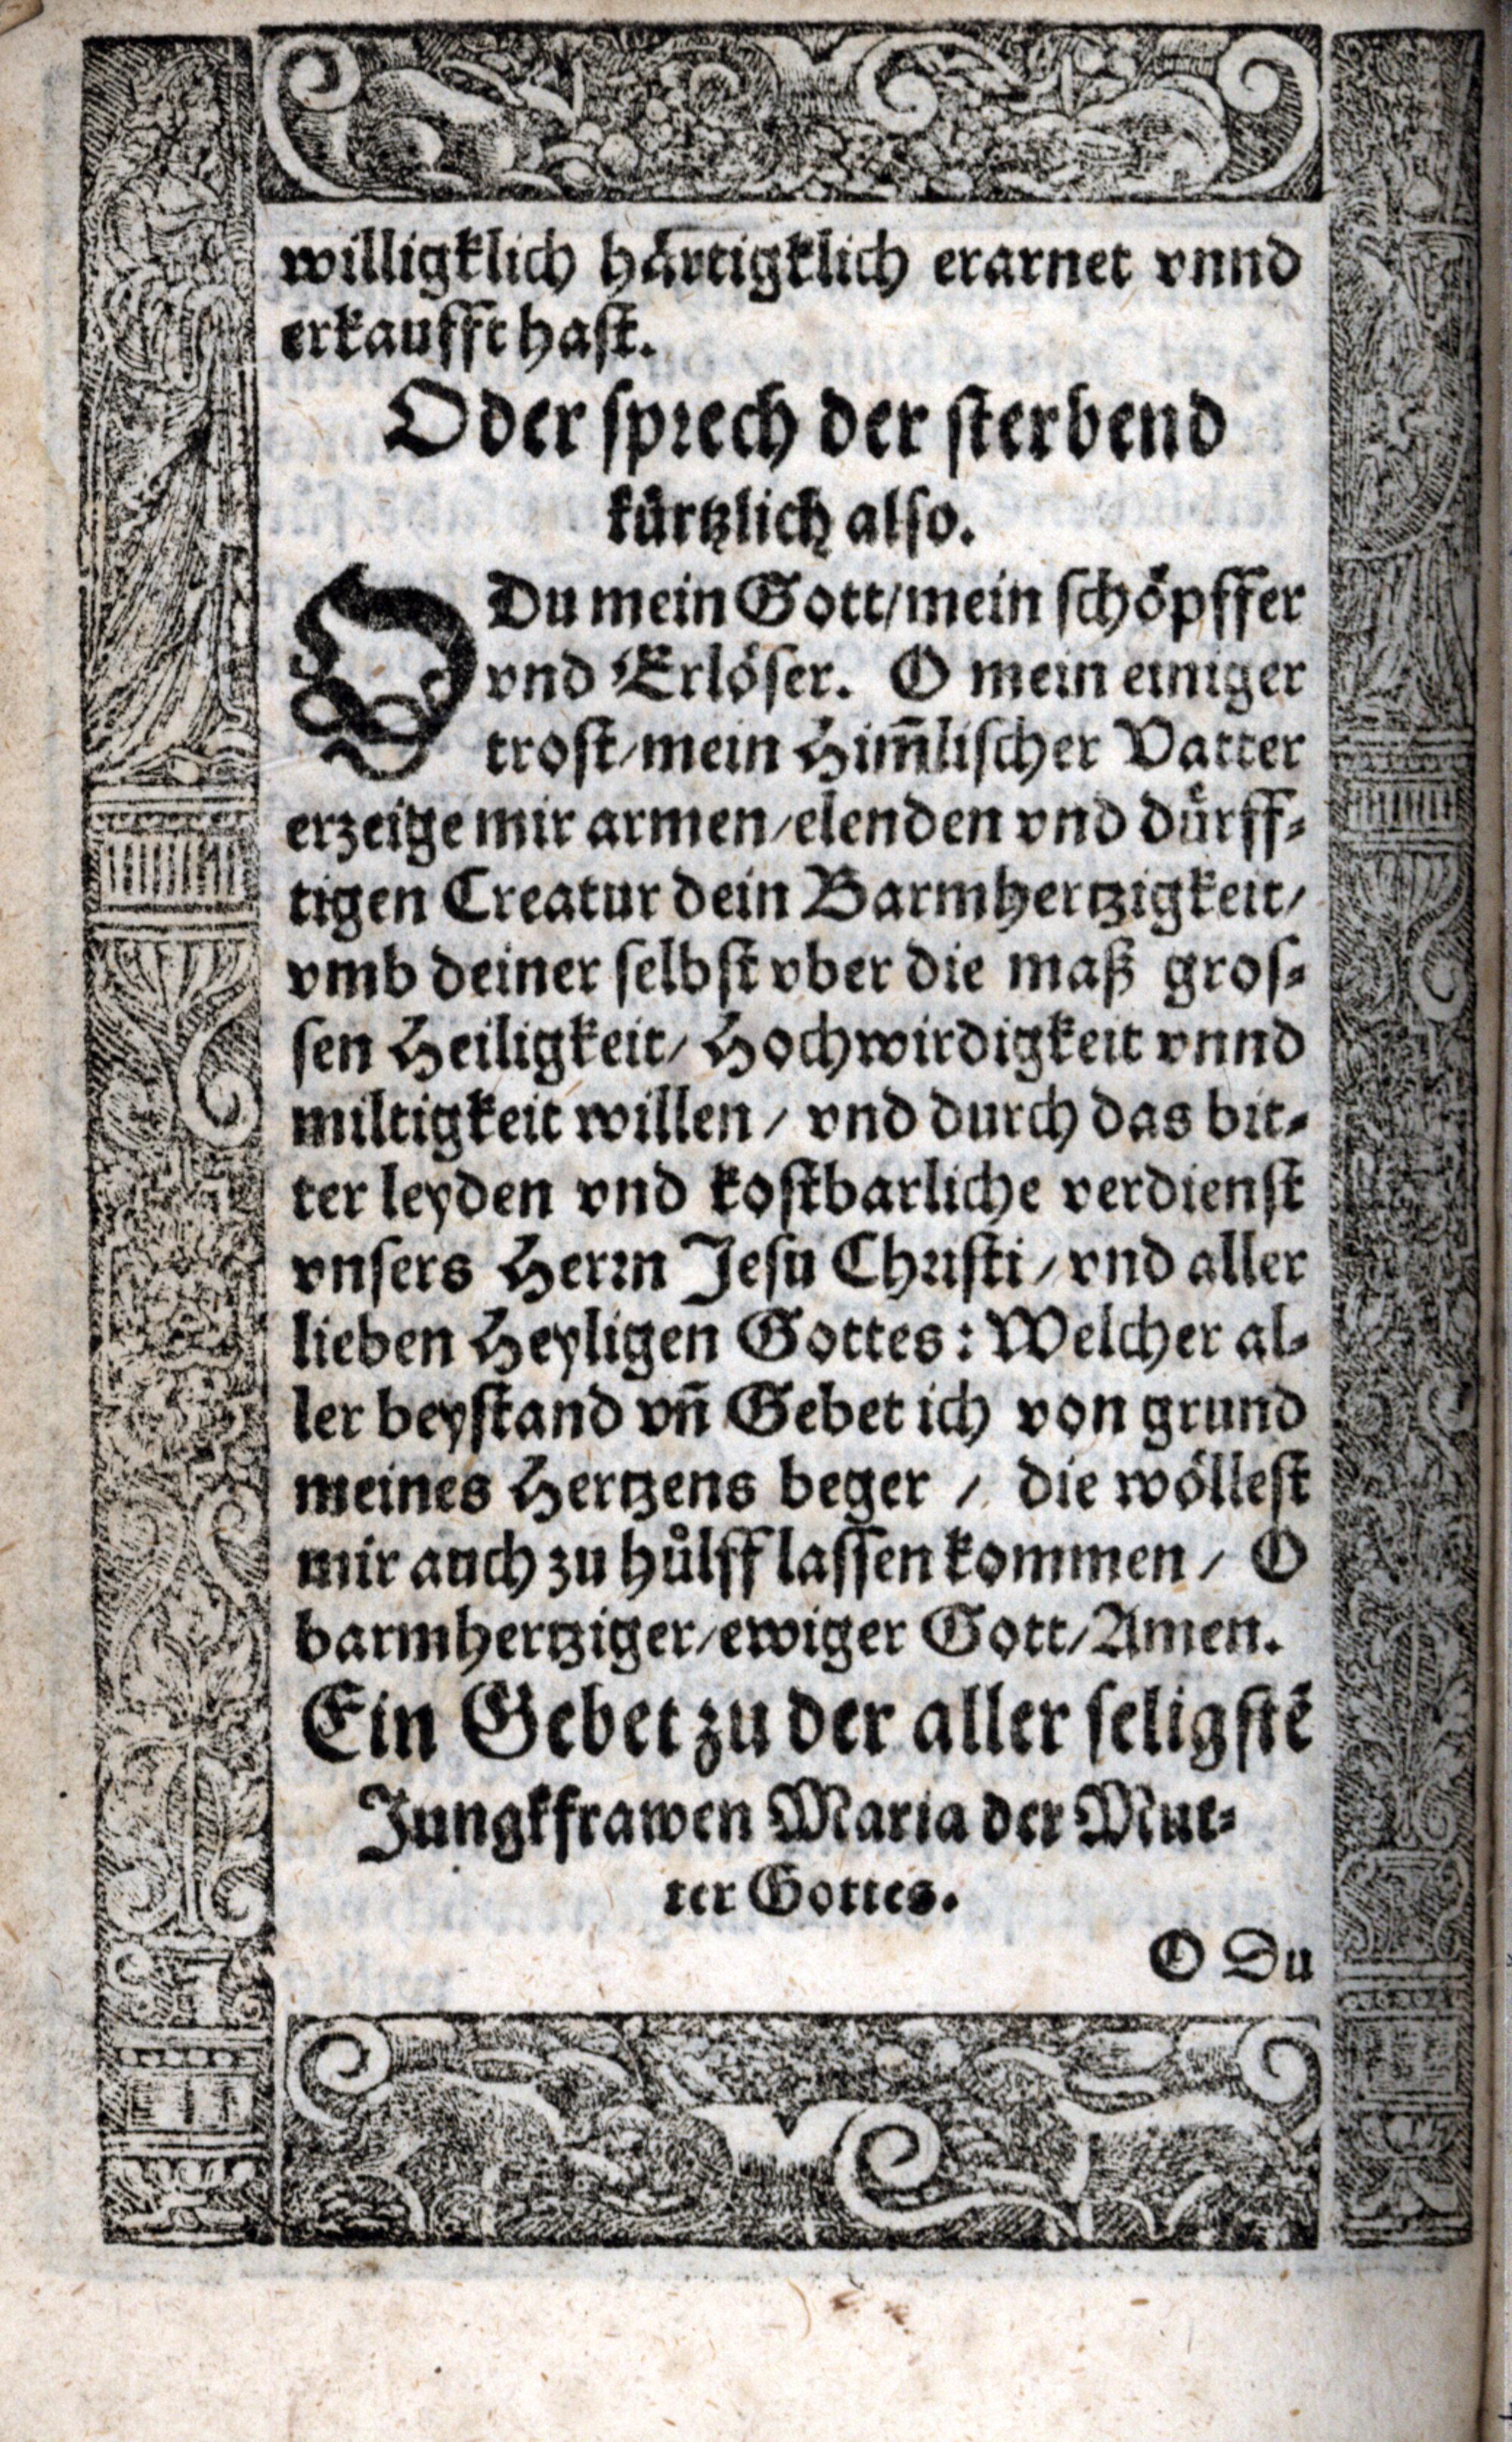 willigklich hårtigklich erarnet vnnd
erkaufft hast.
Oder sprech der sterbend
kürtzlich also.
O Du mein Gott/mein schöpffer
vnd Erlöser. O mein einiger
trost/mein Him̄lischer Vatter
erzeige mir armen/elenden vnd dürff⸗
tigen Creatur dein Barmhertzigkeit/
vmb deiner selbst vber die maß gros⸗
sen Heiligkeit/ Hochwirdigkeit vnnd
miltigkeit willen / vnd durch das bit⸗
ter leyden vnd kostbarliche verdienst
vnsers Herrn Jesu Christi / vnd aller
lieben Heyligen Gottes: Welcher al⸗
ler beystand vn̄ Gebet ich von grund
meines Hertzens beger / die wöllest
mir auch zu hůlff lassen kommen / O
barmhertziger/ewiger Gott/Amen.
Ein Gebet zu der aller seligstē
Jungkfrawen Maria der Mut⸗
ter Gottes.
O Du